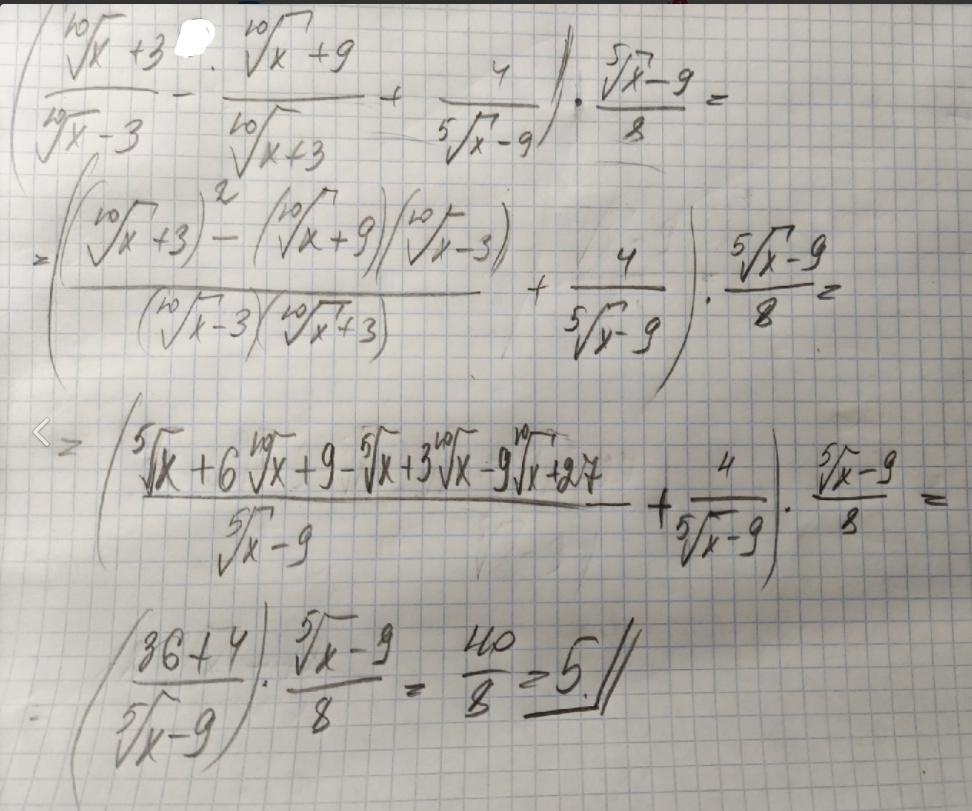 ( (¹⁰√x + 3)/(¹⁰√x - 3) - (¹⁰√x + 9)/(¹⁰√x + 3) + 4/(⁵√x - 9) ) · (⁵√x - 9)/8 =
= ( ((¹⁰√x + 3)² - (¹⁰√x + 9)(¹⁰√x - 3))/((¹⁰√x - 3)(¹⁰√x + 3)) + 4/(⁵√x - 9) ) · (⁵√x - 9)/8 =
= ( (⁵√x + 6¹⁰√x + 9 - ⁵√x + 3¹⁰√x - 9¹⁰√x + 27)/(⁵√x - 9) + 4/(⁵√x - 9) ) · (⁵√x - 9)/8 =
= ( (36 + 4)/(⁵√x - 9) ) · (⁵√x - 9)/8 = 40/8 = 5.//